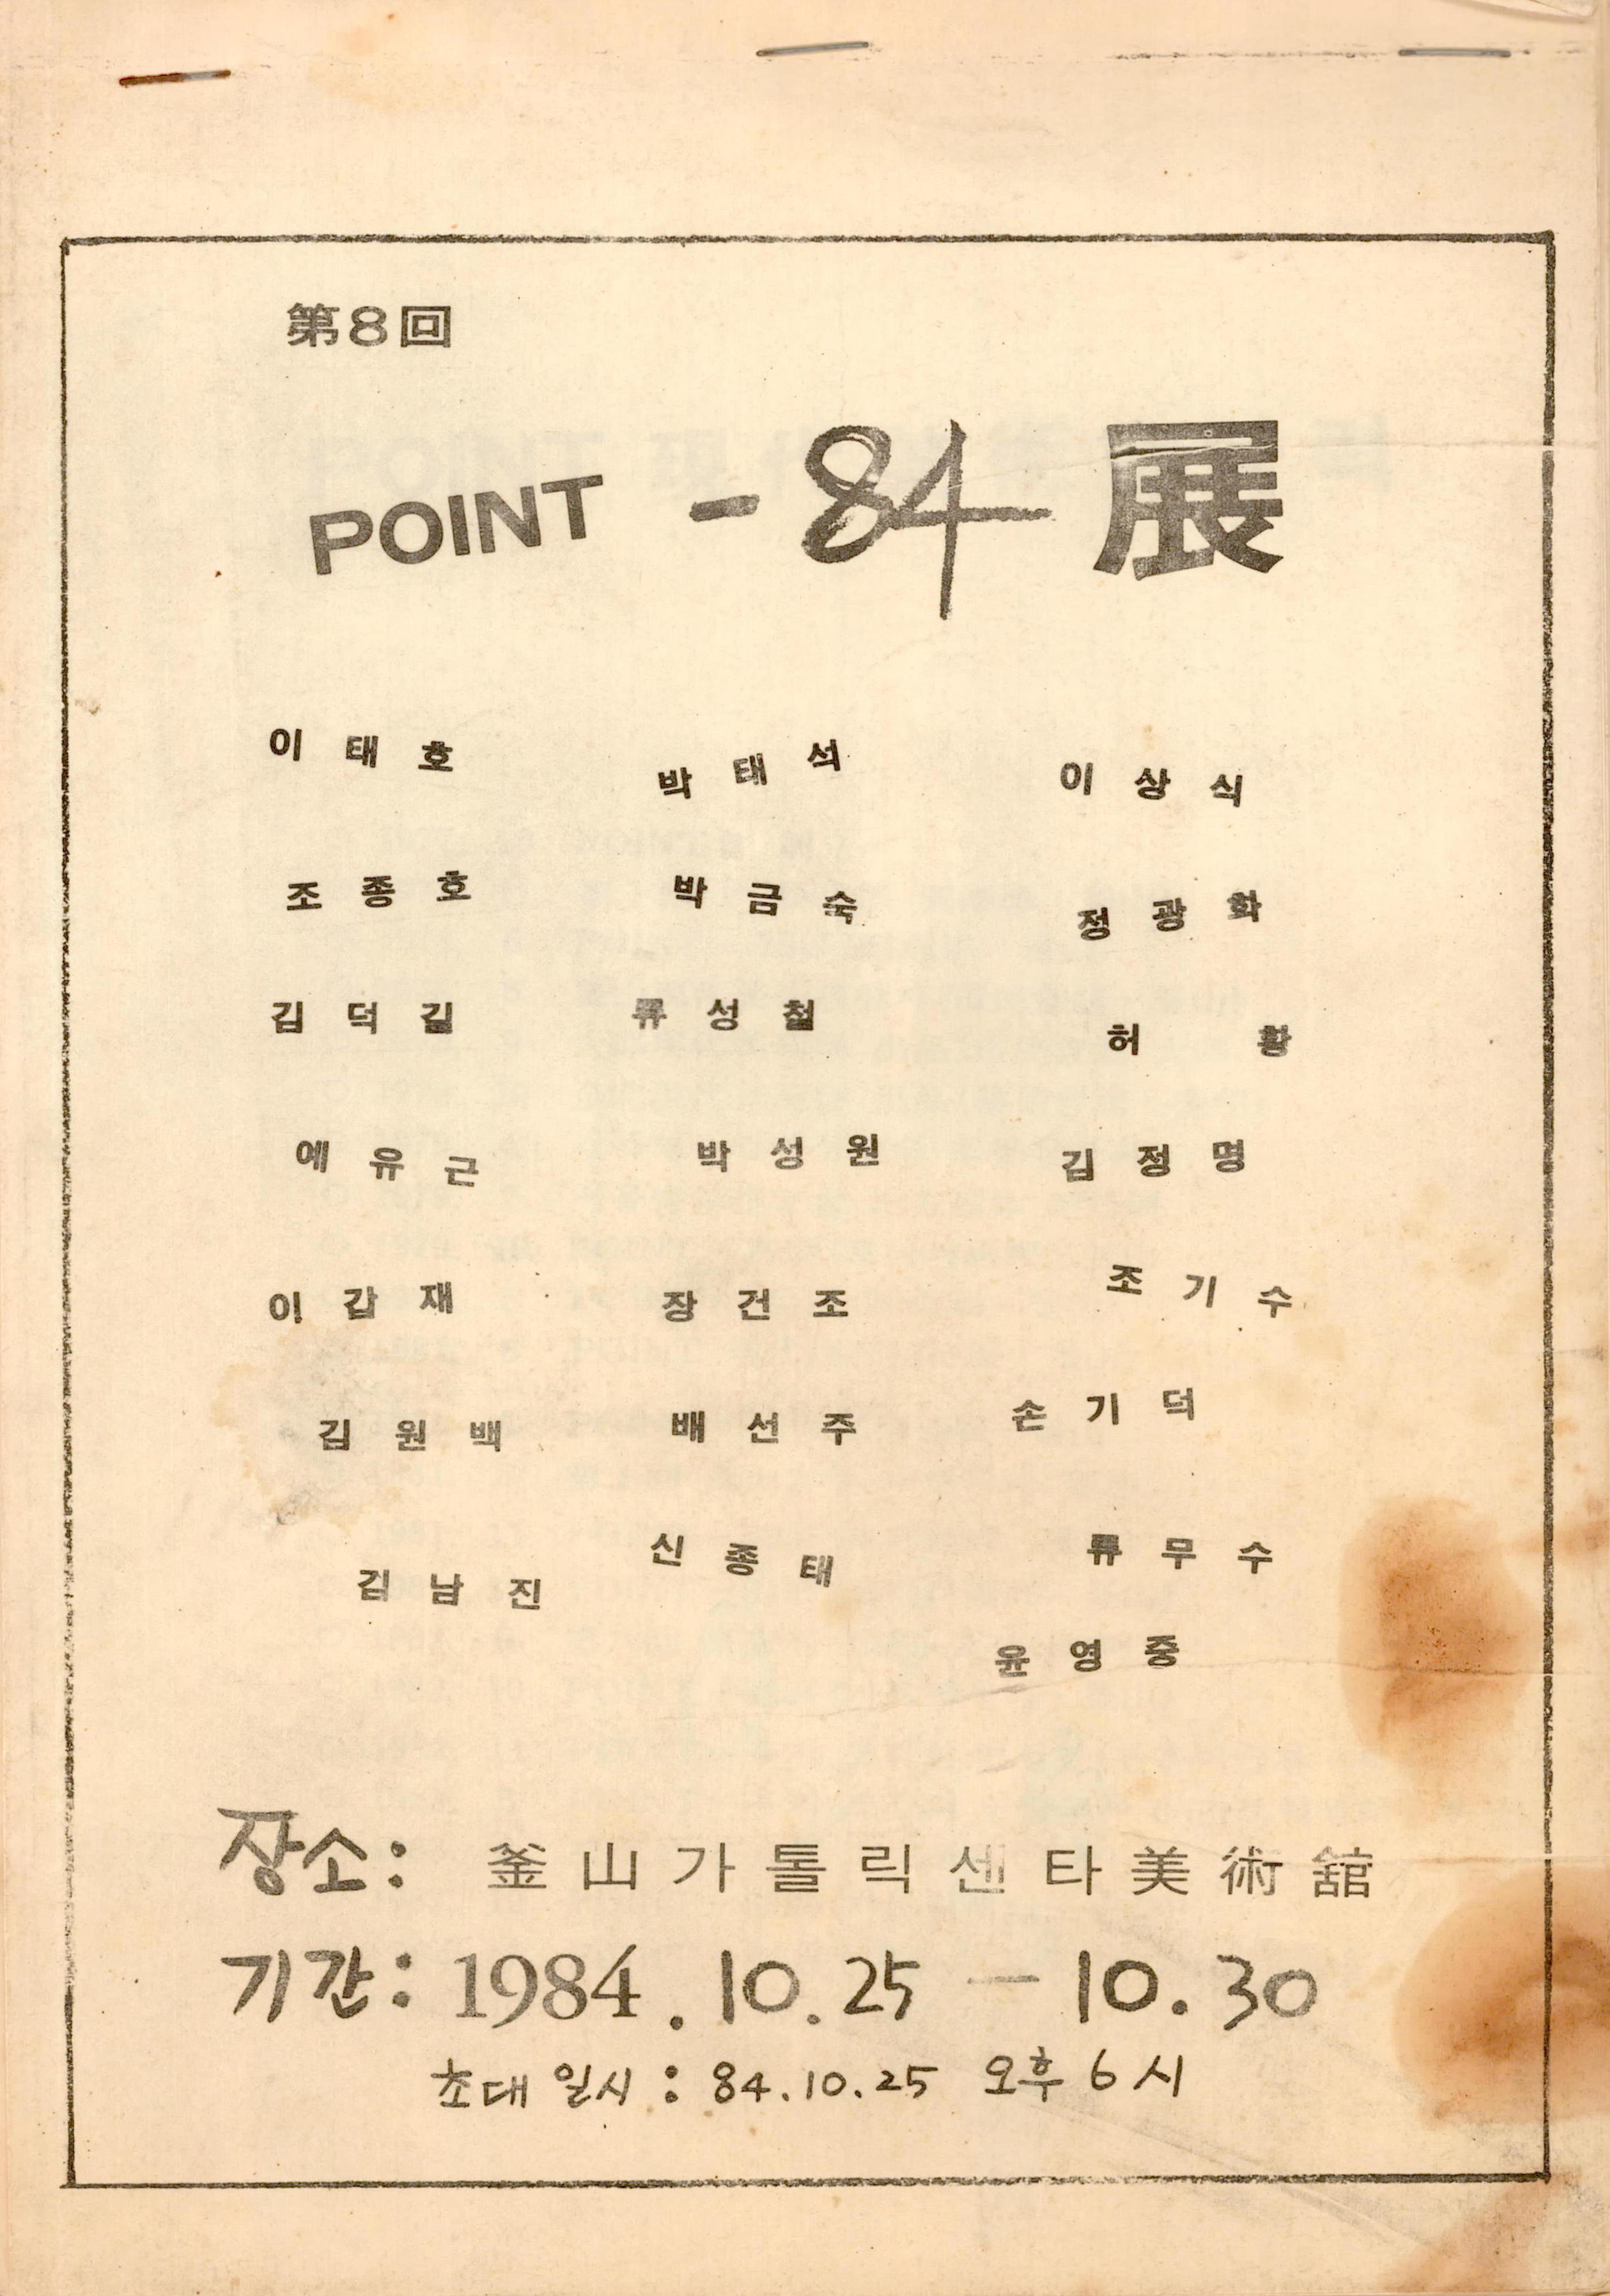 第8回
POINT - 84 展
이태호 박태석 이상식
조종호 박금숙 정광화
김덕길 류성철 허황
예유근 박성원 김정명
이갑재 장건조 조기수
김원백 배선주 손기덕
김남진 신종태 류무수
윤영중
장소: 釜山가톨릭센타美術舘
기간: 1984. 10. 25 — 10. 30
초대 일시 : 84. 10. 25 오후 6시